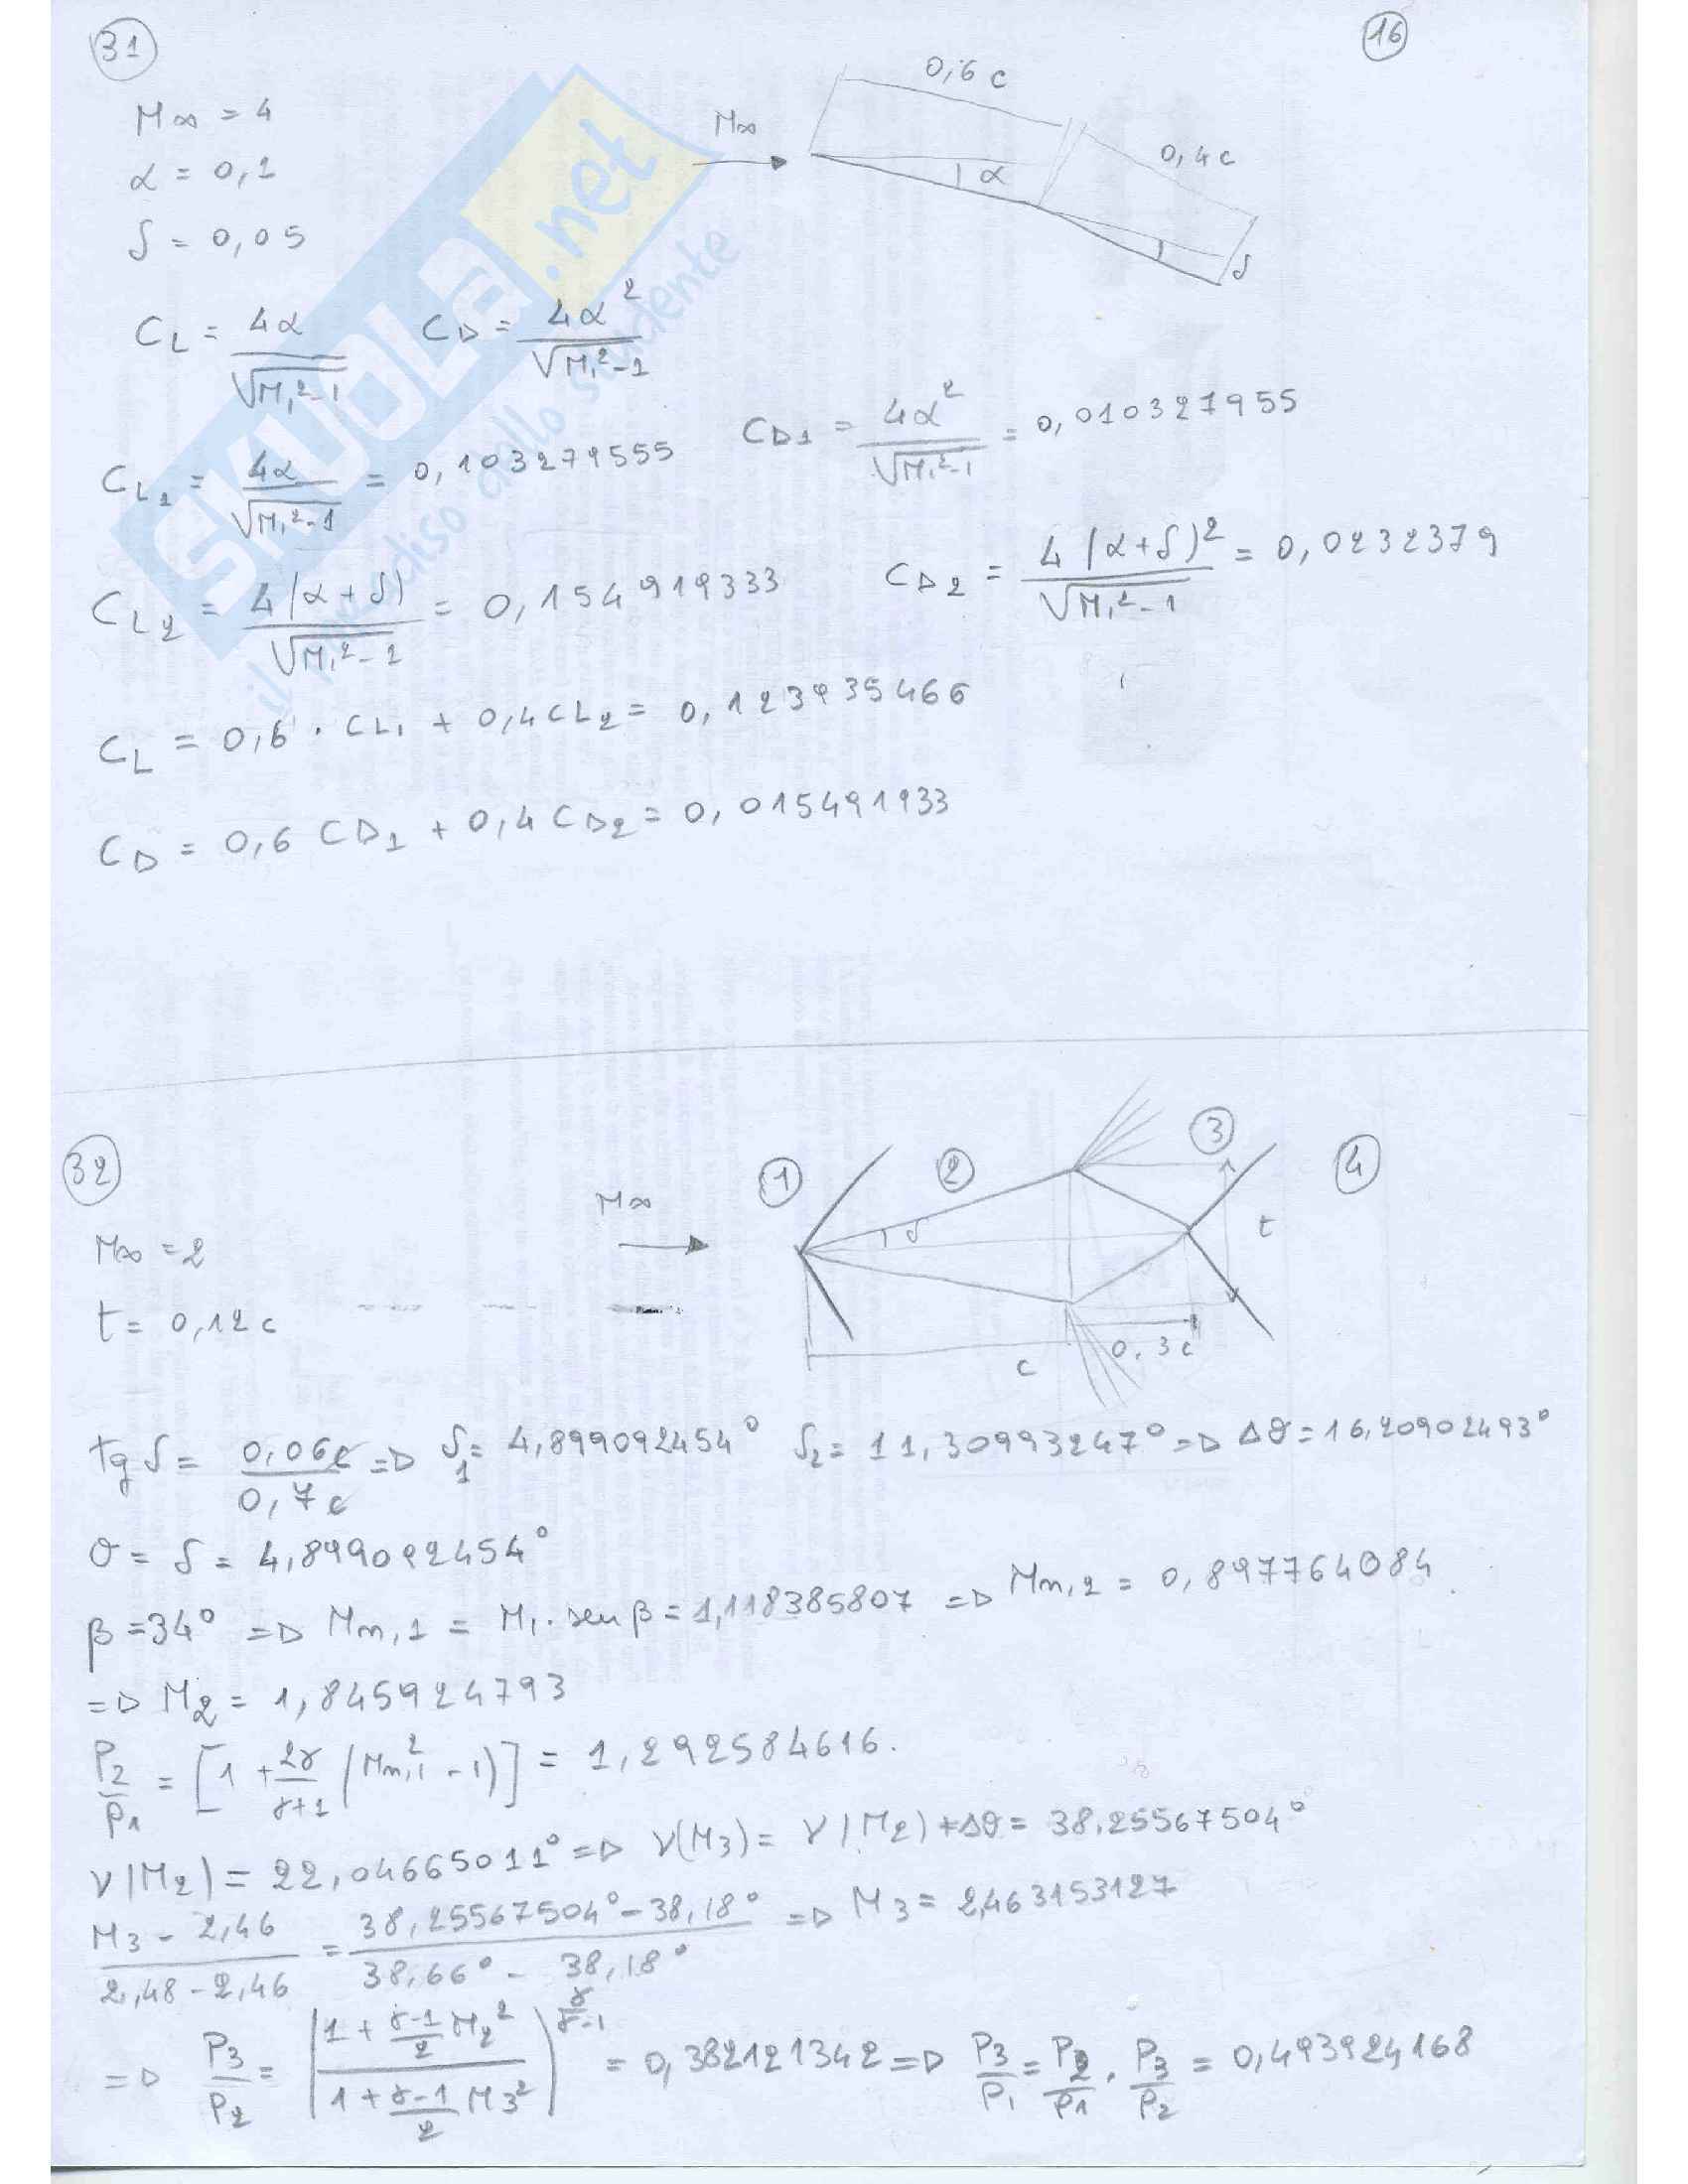 31
16
M∞ = 4
α = 0,1
δ = 0,05
M∞
0,6 c
0,4 c
α
δ
SKUOLA.net
il paradiso dello studente
CL = 4α / √M₁²-1   CD = 4α² / √M₁²-1
CL1 = 4α / √M₁²-1 = 0,103279555   CD1 = 4α² / √M₁²-1 = 0,010327955
CL2 = 4(α+δ) / √M₁²-1 = 0,154919333   CD2 = 4(α+δ)² / √M₁²-1 = 0,0232379
CL = 0,6 · CL1 + 0,4 CL2 = 0,123935466
CD = 0,6 CD1 + 0,4 CD2 = 0,015491933
32
M∞ = 2
t = 0,12 c
M∞
1
2
3
4
δ
t
c
0.3c
tg δ = 0,06c / 0,7c => δ1 = 4,899092454°   δ2 = 11,30993247° => Δθ = 16,20902493°
θ = δ = 4,899092454°
β = 34° => Mn,1 = M1 · sen β = 1,118385807 => Mn,2 = 0,897764084
=> M2 = 1,845924793
P2/P1 = [1 + 2γ/γ+1 (Mn,1² - 1)] = 1,292584616.
ν(M2) = 22,04665011° => ν(M3) = ν(M2) + Δθ = 38,25567504°
M3 - 2,46 / 2,48 - 2,46 = 38,25567504° - 38,18° / 38,66° - 38,18° => M3 = 2,463153127
=> P3/P2 = (1 + γ-1/2 M2² / 1 + γ-1/2 M3²)^γ/γ-1 = 0,382121342 => P3/P1 = P2/P1 · P3/P2 = 0,493924168